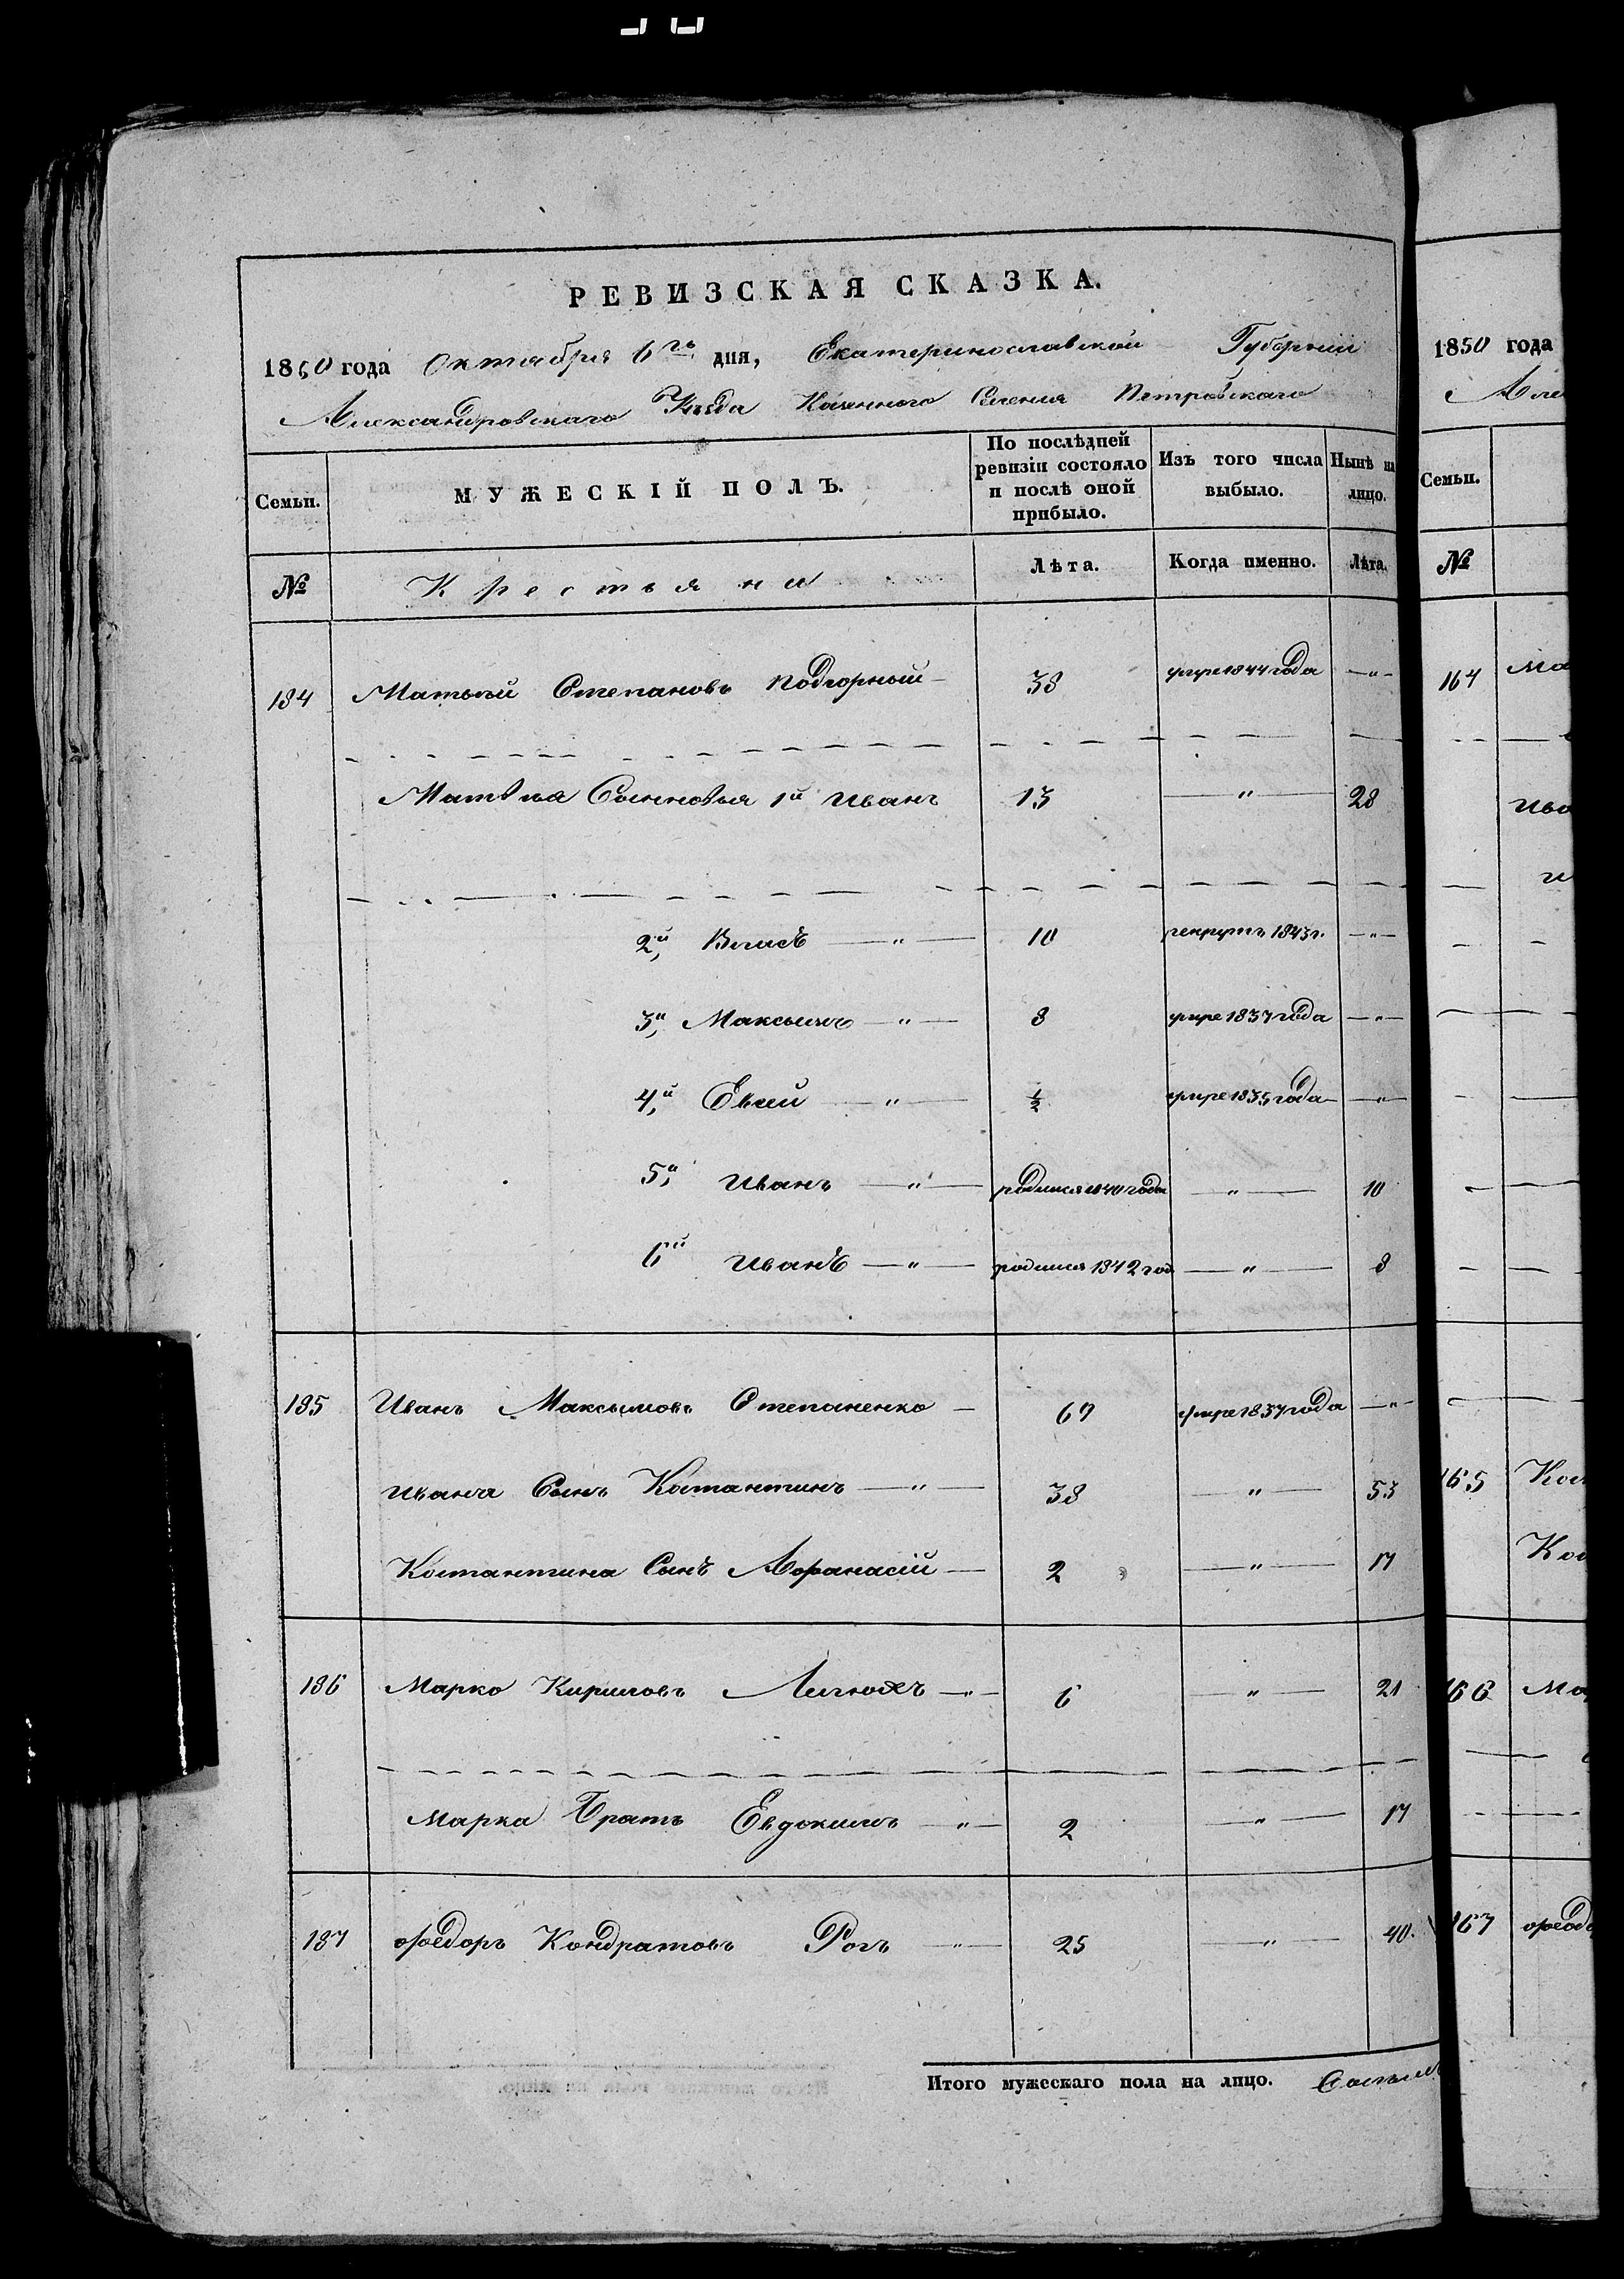 РЕВИЗСКАЯ СКАЗКА.
1850 года Октября 6го дня, Екатеринославской Губернии
Александровскаго Уѣзда Казенного Селения Петровскаго
Семьи. МУЖЕСКІЙ ПОЛЪ. По послѣдней ревизіи состояло и послѣ оной прибыло. Изъ того числа выбыло. Нынѣ на лицо.
№ Крестьяни Лѣта. Когда именно. Лѣта.
184 Матвѣй Степановъ Подгорный — 38 умре 1844 года —"—
Матвѣя Сынновья 1й Иванъ 13 —"— 28
2й Власъ —"— 10 рекрутъ 1843 г. —"—
3й Максымъ —"— 8 умре 1837 года —"—
4й Евсей —"— ½ умре 1835 года —"—
5й Иванъ —"— родился 1840 года —"— 10
6й Иванъ —"— родился 1842 год —"— 8
185 Иванъ Максымовъ Степаненко — 67 умре 1837 года —"—
Ивана Сынъ Костантинъ —"— 38 —"— 53
Костантина Сынъ Афанасій — 2 —"— 17
186 Марко Кириловъ —"— 6 —"— 21
Марка Братъ Евдокимъ —"— 2 —"— 17
187 Федоръ Кондратовъ Рогъ —"— 25 —"— 40.
Итого мужескаго пола на лицо.
1850 года
Семьи.
№
164
165
166
167